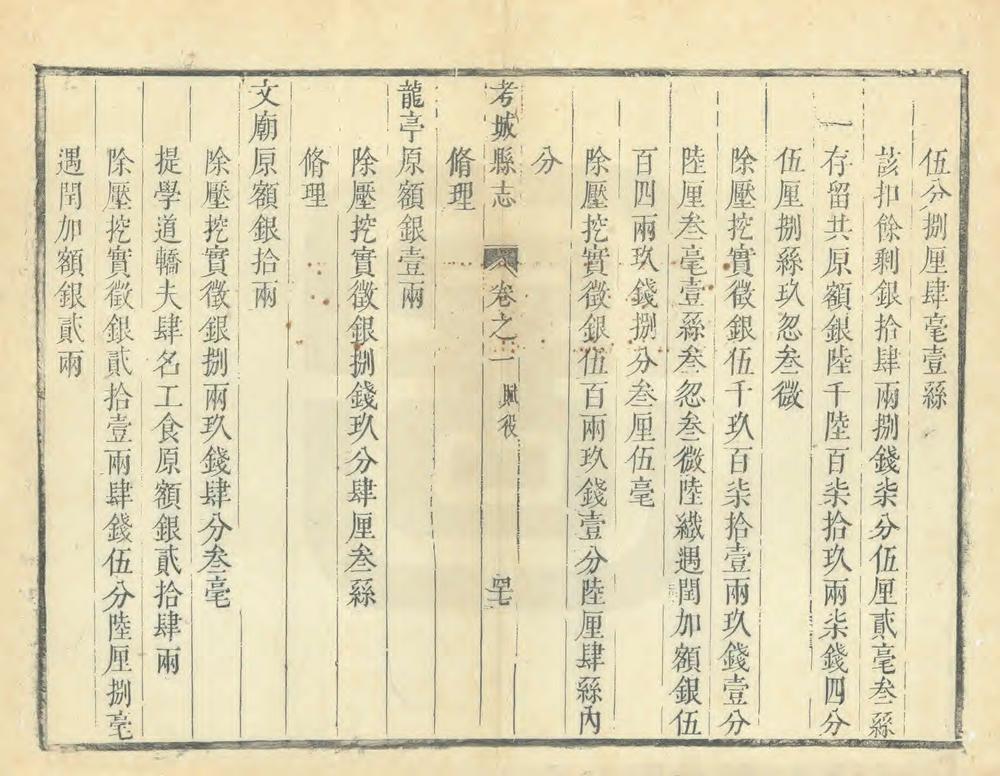 伍分捌厘肆毫壹絲
該扣餘剩銀拾肆兩捌錢柒分伍厘貳毫叁絲
一存留共原額銀陸千陸百柒拾玖兩柒錢四分
伍厘捌絲玖忽叁微
除壓挖實徵銀伍千玖百柒拾壹兩玖錢壹分
陸厘叁毫壹絲叁忽叁微陸纖遇閏加額銀伍
百四兩玖錢捌分叁厘伍毫
除壓挖實徵銀伍百兩玖錢壹分陸厘肆絲內
分
考城縣志 卷之二 賦役 四七
脩理
龍亭原額銀壹兩
除壓挖實徵銀捌錢玖分肆厘叁絲
脩理
文廟原額銀拾兩
除壓挖實徵銀捌兩玖錢肆分叁毫
提學道轎夫肆名工食原額銀貳拾肆兩
除壓挖實徵銀貳拾壹兩肆錢伍分陸厘捌毫
遇閏加額銀貳兩